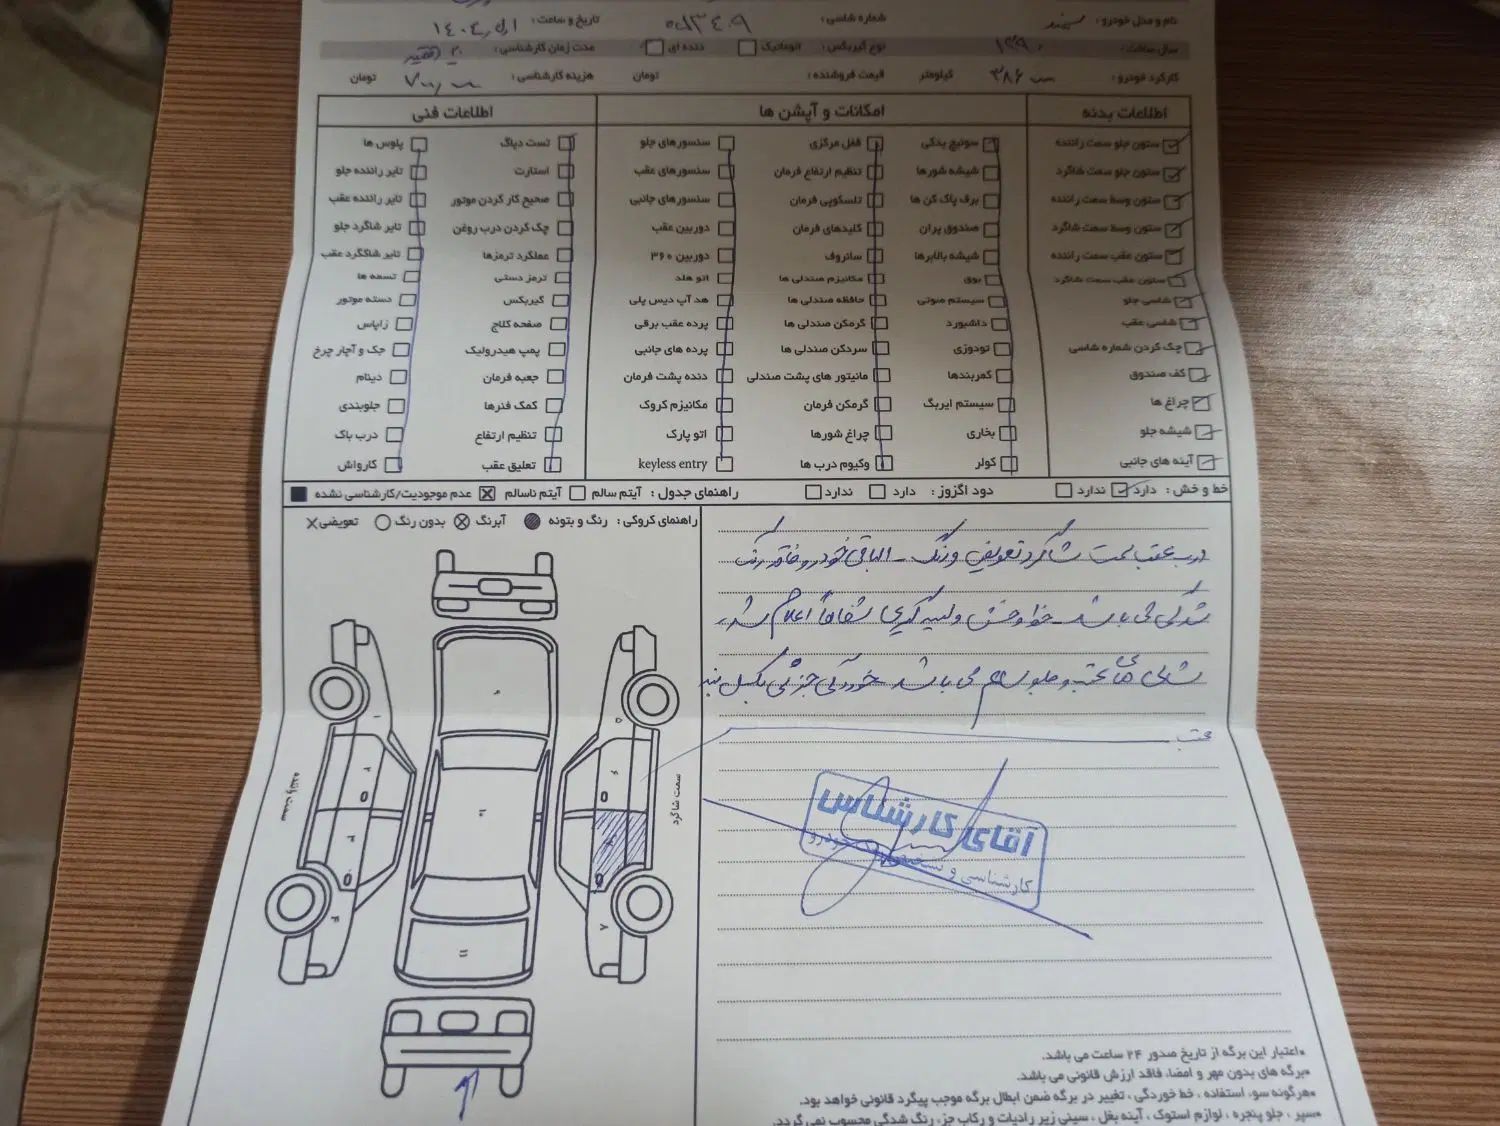 نام و مدل خودرو : سمند شماره شاسی : تاریخ و ساعت :
سال ساخت : ۱۳۹۰ نوع گیربکس : اتوماتیک دنده ای مدت زمان کارشناسی : ۲۰ دقیقه
کارکرد خودرو : کیلومتر قیمت فروشنده : تومان هزینه کارشناسی : تومان
اطلاعات بدنه امکانات و آپشن ها اطلاعات فنی
ستون جلو سمت راننده سوئیچ یدکی قفل مرکزی سنسورهای جلو تست دیاگ پلوس ها
ستون جلو سمت شاگرد شیشه شورها تنظیم ارتفاع فرمان سنسورهای عقب استارت تایر راننده جلو
ستون وسط سمت راننده برف پاک کن ها تلسکوپی فرمان سنسورهای جانبی صحیح کار کردن موتور تایر راننده عقب
ستون وسط سمت شاگرد صندوق پران کلیدهای فرمان دوربین عقب چک کردن درب روغن تایر شاگرد جلو
ستون عقب سمت راننده شیشه بالابرها سانروف دوربین ۳۶۰ عملکرد ترمزها تایر شاگرد عقب
ستون عقب سمت شاگرد بوق مکانیزم صندلی ها اتو هلد ترمز دستی تسمه ها
شاسی جلو سیستم صوتی حافظه صندلی ها هد آپ دیس پلی گیربکس دسته موتور
شاسی عقب داشبورد گرمکن صندلی ها پرده عقب برقی صفحه کلاچ زاپاس
چک کردن شماره شاسی تودوزی سردکن صندلی ها پرده های جانبی پمپ هیدرولیک جک و آچار چرخ
کف صندوق کمربندها مانیتور های پشت صندلی دنده پشت فرمان جعبه فرمان دینام
چراغ ها سیستم ایربگ گرمکن فرمان مکانیزم کروک کمک فنرها جلوبندی
شیشه جلو بخاری چراغ شورها اتو پارک تنظیم ارتفاع درب باک
آینه های جانبی کولر وکیوم درب ها keyless entry تعلیق عقب کارواش
خط و خش : دارد ندارد دود اگزوز : دارد ندارد راهنمای جدول : آیتم سالم آیتم ناسالم عدم موجودیت/کارشناسی نشده
راهنمای کروکی : رنگ و بتونه آبرنگ بدون رنگ تعویضی
درب عقب سمت شاگرد تعویض و رنگ - الباقی خودرو فاقد رنگ
شدگی می باشد - خط و خش و لیسه گیری شفاها اعلام شد.
شاسی های عقب و جلو سالم می باشد خوردگی جزئی
عقب
سمت راننده
سمت شاگرد
۱ ۲ ۳ ۴ ۵ ۶ ۸ ۹ ۱۰ ۱۱
آقای کارشناس
کارشناسی و خودرو
•اعتبار این برگه از تاریخ صدور ۲۴ ساعت می باشد.
•برگه های بدون مهر و امضا، فاقد ارزش قانونی می باشد.
•هرگونه سو، استفاده ، خط خوردگی ، تغییر در برگه ضمن ابطال برگه موجب پیگرد قانونی خواهد بود.
•سپر ، جلو پنجره ، لوازم استوک ، آینه بغل ، سینی زیر رادیات و رکاب جز، رنگ شدگی محسوب نمی گردد.